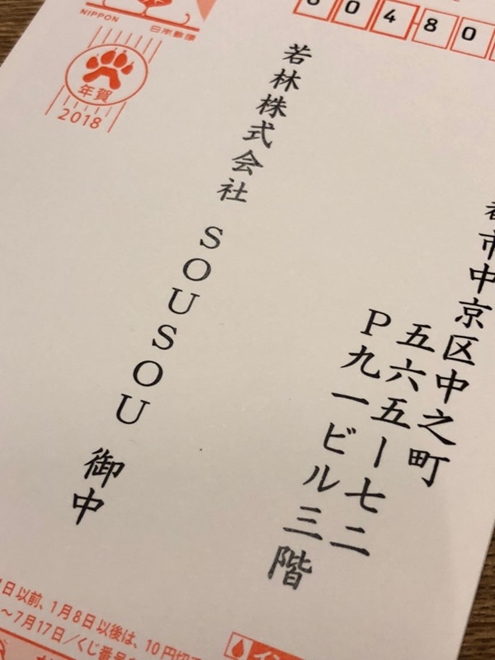 NIPPON
日本郵便
年賀
2018
604-80
市中京区中之町
五六五ー七二
P九一ビル三階
若林株式会社 SOUSOU 御中
日以前、1月8日以後は、10円切
～7月17日／くじ番号